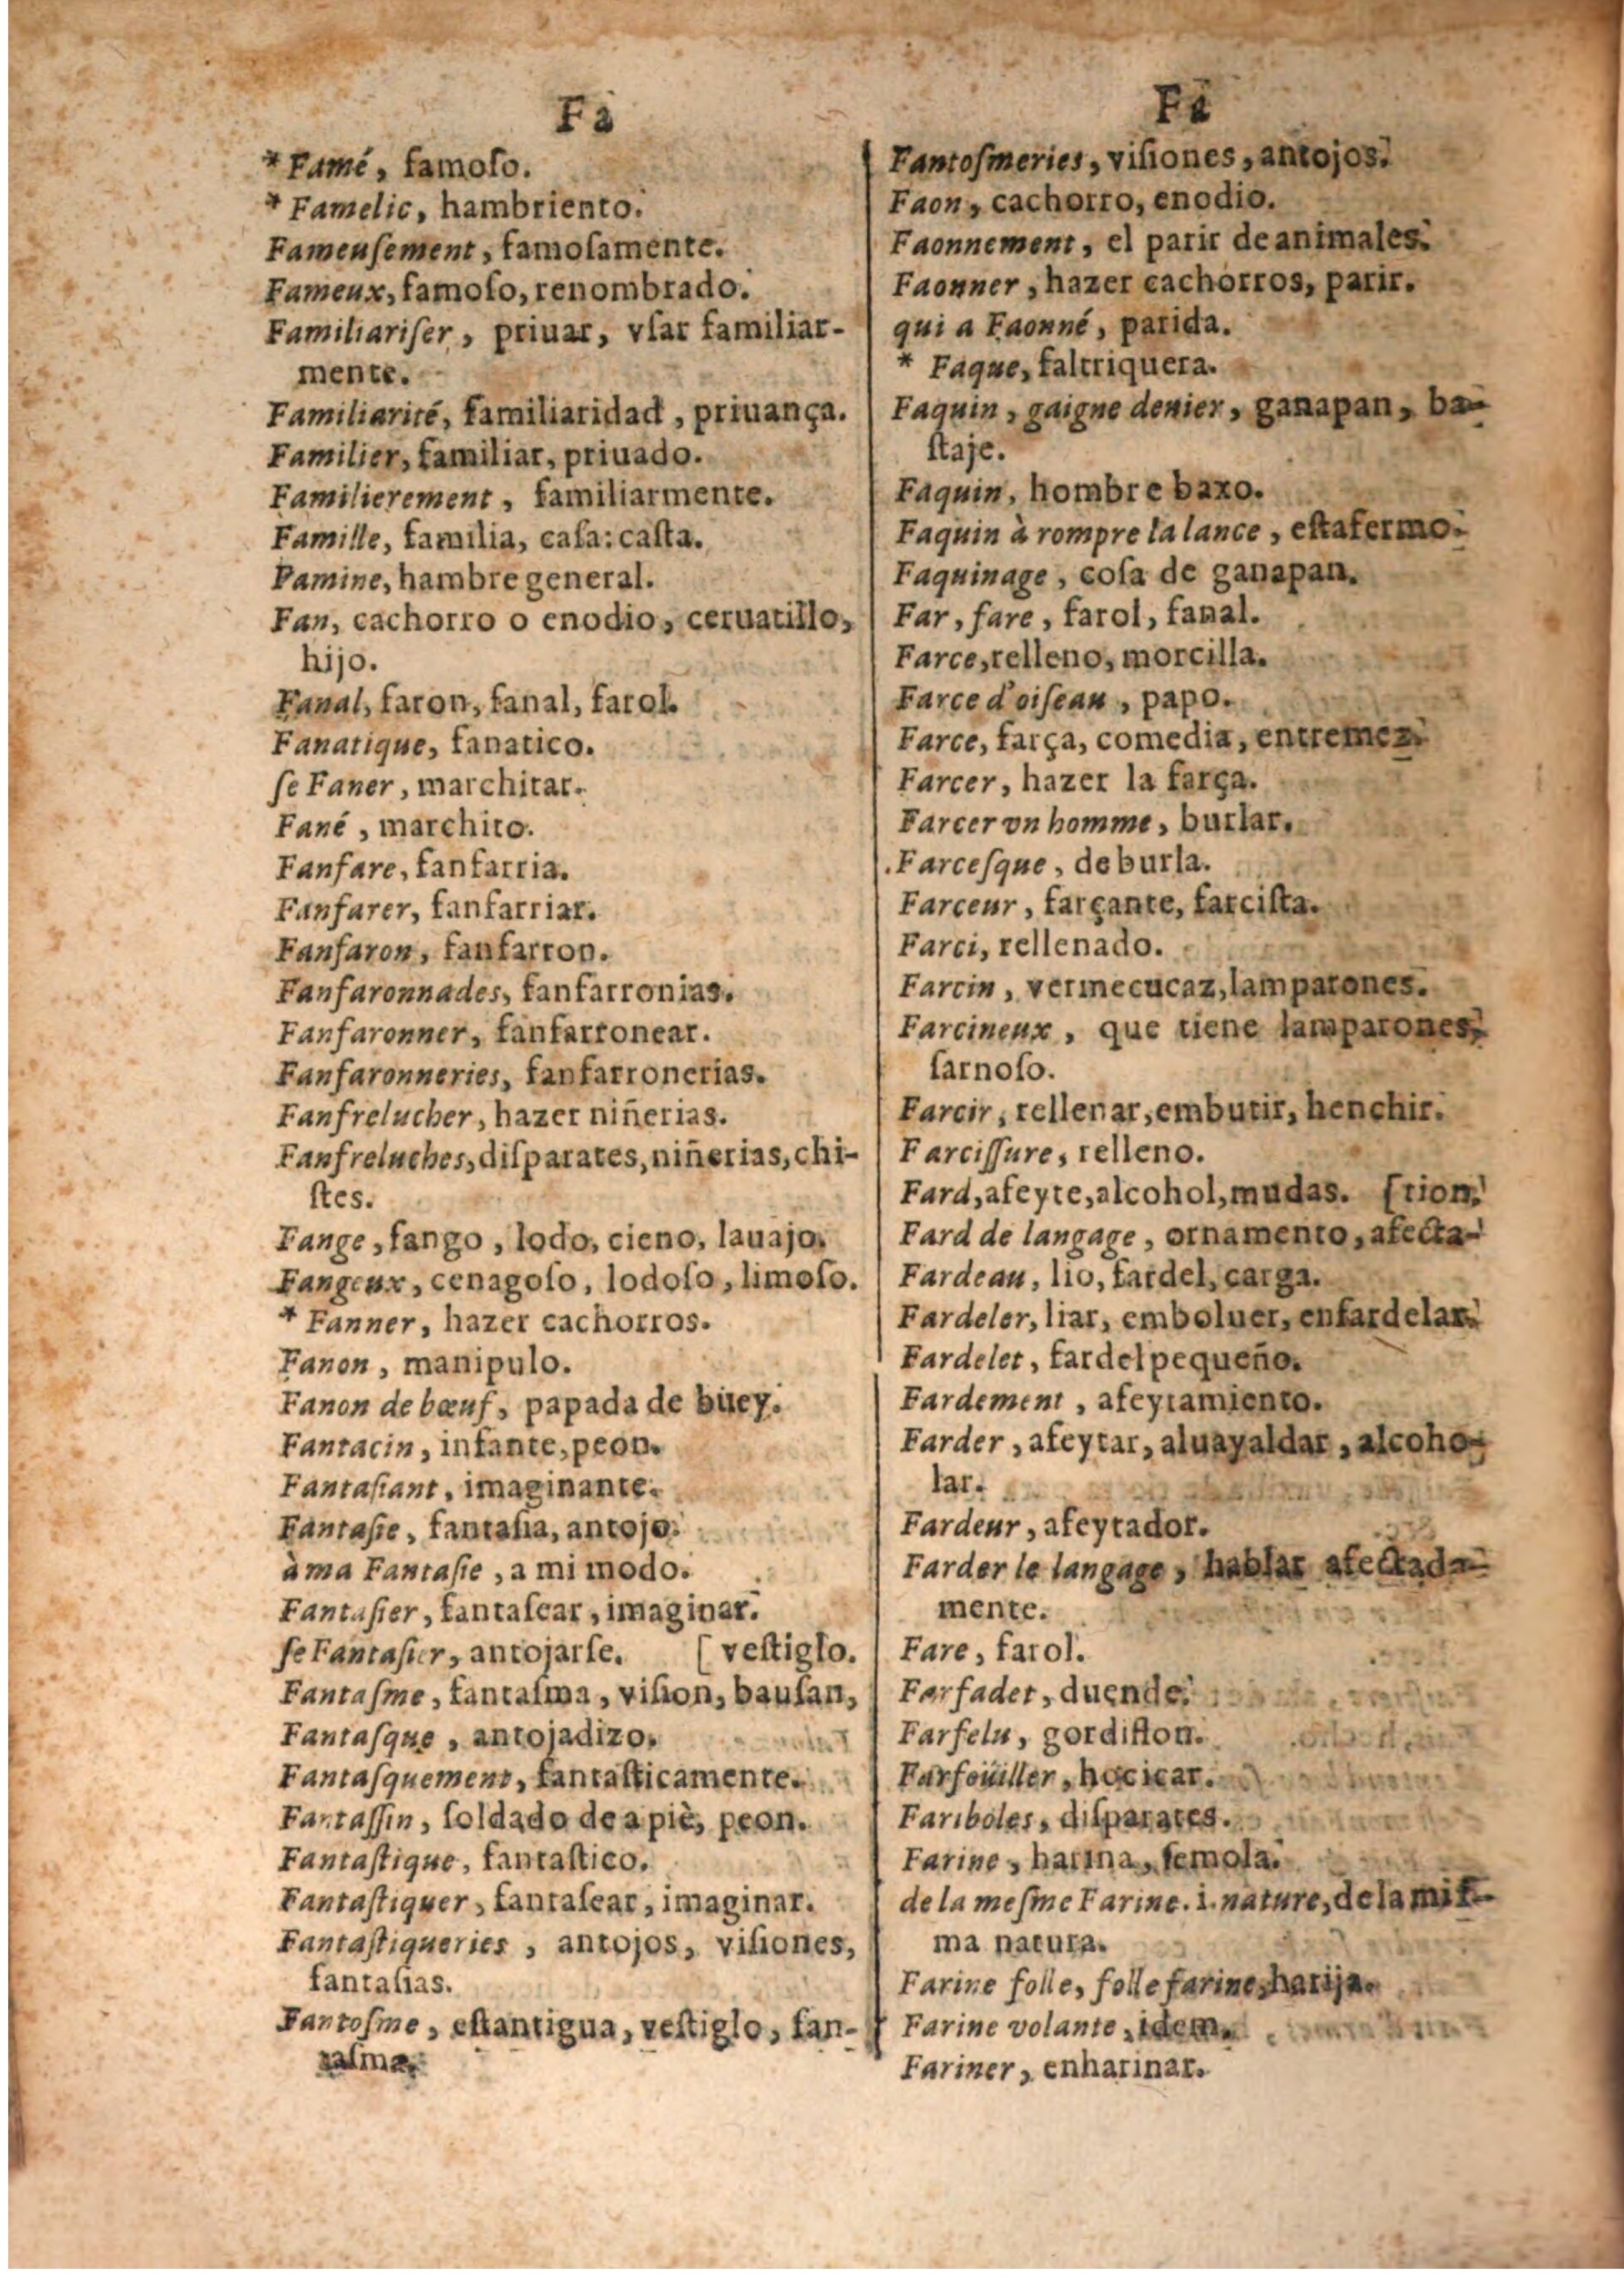 Fa
* Famé, famoſo.
* Famelic, hambriento.
Fameuſement, famoſamente.
Fameux, famoſo, renombrado.
Familiariſer, priuar, vſar familiar-
mente.
Familiarité, familiaridad, priuança.
Familier, familiar, priuado.
Familierement, familiarmente.
Famille, familia, caſa: caſta.
Famine, hambre general.
Fan, cachorro o enodio, ceruatillo,
hijo.
Fanal, faron, fanal, farol.
Fanatique, fanatico.
ſe Faner, marchitar.
Fané, marchito.
Fanfare, fanfarria.
Fanfarer, fanfarriar.
Fanfaron, fanfarron.
Fanfaronnades, fanfarronias.
Fanfaronner, fanfarronear.
Fanfaronneries, fanfarronerias.
Fanfrelucher, hazer niñerias.
Fanfreluches, diſparates, niñerias, chi-
ſtes.
Fange, fango, lodo, cieno, lauajo.
Fangeux, cenagoſo, lodoſo, limoſo.
* Fanner, hazer cachorros.
Fanon, manipulo.
Fanon de bœuf, papada de buey.
Fantacin, infante, peon.
Fantaſiant, imaginante.
Fantaſie, fantaſia, antojo.
à ma Fantaſie, a mi modo.
Fantaſier, fantaſear, imaginar.
ſe Fantaſier, antojarſe. [ veſtiglo.
Fantaſme, fantaſma, viſion, bauſan,
Fantaſque, antojadizo.
Fantaſquement, fantaſticamente.
Fantaſſin, ſoldado de a piè, peon.
Fantaſtique, fantaſtico.
Fantaſtiquer, fantaſear, imaginar.
Fantaſtiqueries, antojos, viſiones,
fantaſias.
Fantoſme, eſtantigua, veſtiglo, fan-
taſma.
Fa
Fantoſmeries, viſiones, antojos.
Faon, cachorro, enodio.
Faonnement, el parir de animales.
Faonner, hazer cachorros, parir.
qui a Faonné, parida.
* Faque, faltriquera.
Faquin, gaigne denier, ganapan, ba-
ſtaje.
Faquin, hombre baxo.
Faquin à rompre la lance, eſtafermo.
Faquinage, coſa de ganapan.
Far, fare, farol, fanal.
Farce, relleno, morcilla.
Farce d'oiſeau, papo.
Farce, farça, comedia, entremez.
Farcer, hazer la farça.
Farcer vn homme, burlar.
Farceſque, de burla.
Farceur, farçante, farciſta.
Farci, rellenado.
Farcin, vermecucaz, lamparones.
Farcineux, que tiene lamparones,
ſarnoſo.
Farcir, rellenar, embutir, henchir.
Farciſſure, relleno.
Fard, afeyte, alcohol, mudas. [tion.
Fard de langage, ornamento, afecta-
Fardeau, lio, fardel, carga.
Fardeler, liar, emboluer, enfardelar.
Fardelet, fardel pequeño.
Fardement, afeytamiento.
Farder, afeytar, aluayaldar, alcoho-
lar.
Fardeur, afeytador.
Farder le langage, hablar afectada-
mente.
Fare, farol.
Farfadet, duende.
Farfelu, gordiflon.
Farfoüiller, hocicar.
Fariboles, diſparates.
Farine, harina, ſemola.
de la meſme Farine. i. nature, de la miſ-
ma natura.
Farine folle, folle farine, harija.
Farine volante, idem.
Fariner, enharinar.